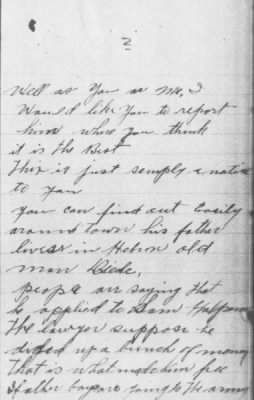 2
Well as you or me, I
Would like you to report
him where you think
it is the Best
This is just semply a notice
to you
you can find out Easily
around town his father
lives in Hebron old
man
people are saying that
he applied to Sam
The lawyer suppose he
divied up a bunch of money
That is what made him free
Rather than going to the army